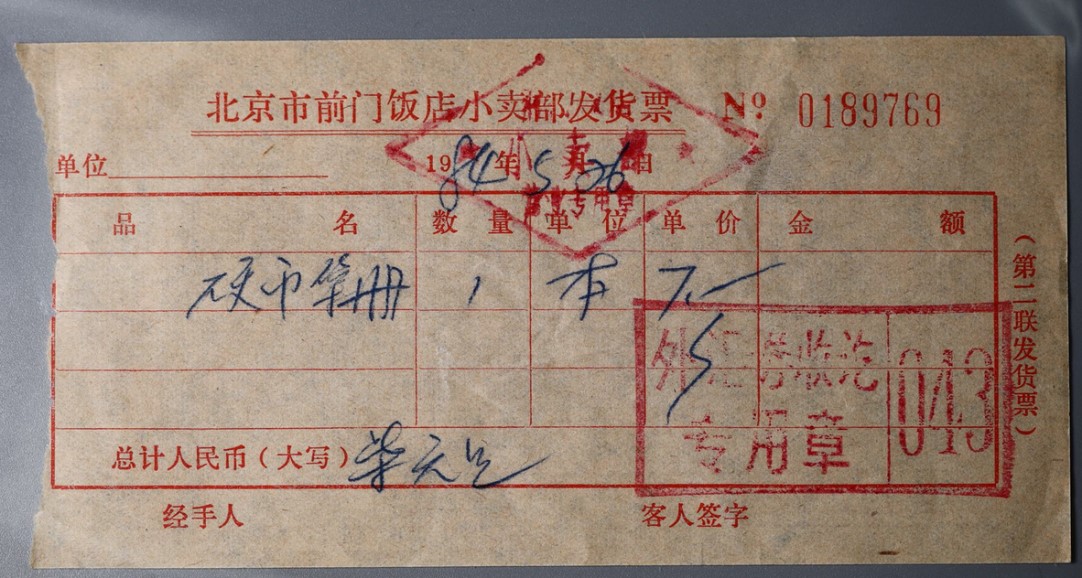 北京市前门饭店小卖部发货票 № 0189769
单位 1984年5月26日
小卖部
专用章
品名 数量 单位 单价 金额
硬币 册 1 本 7.—
外汇券收讫 043
专用章
总计人民币（大写）柒元
经手人 客人签字
（第二联发货票）